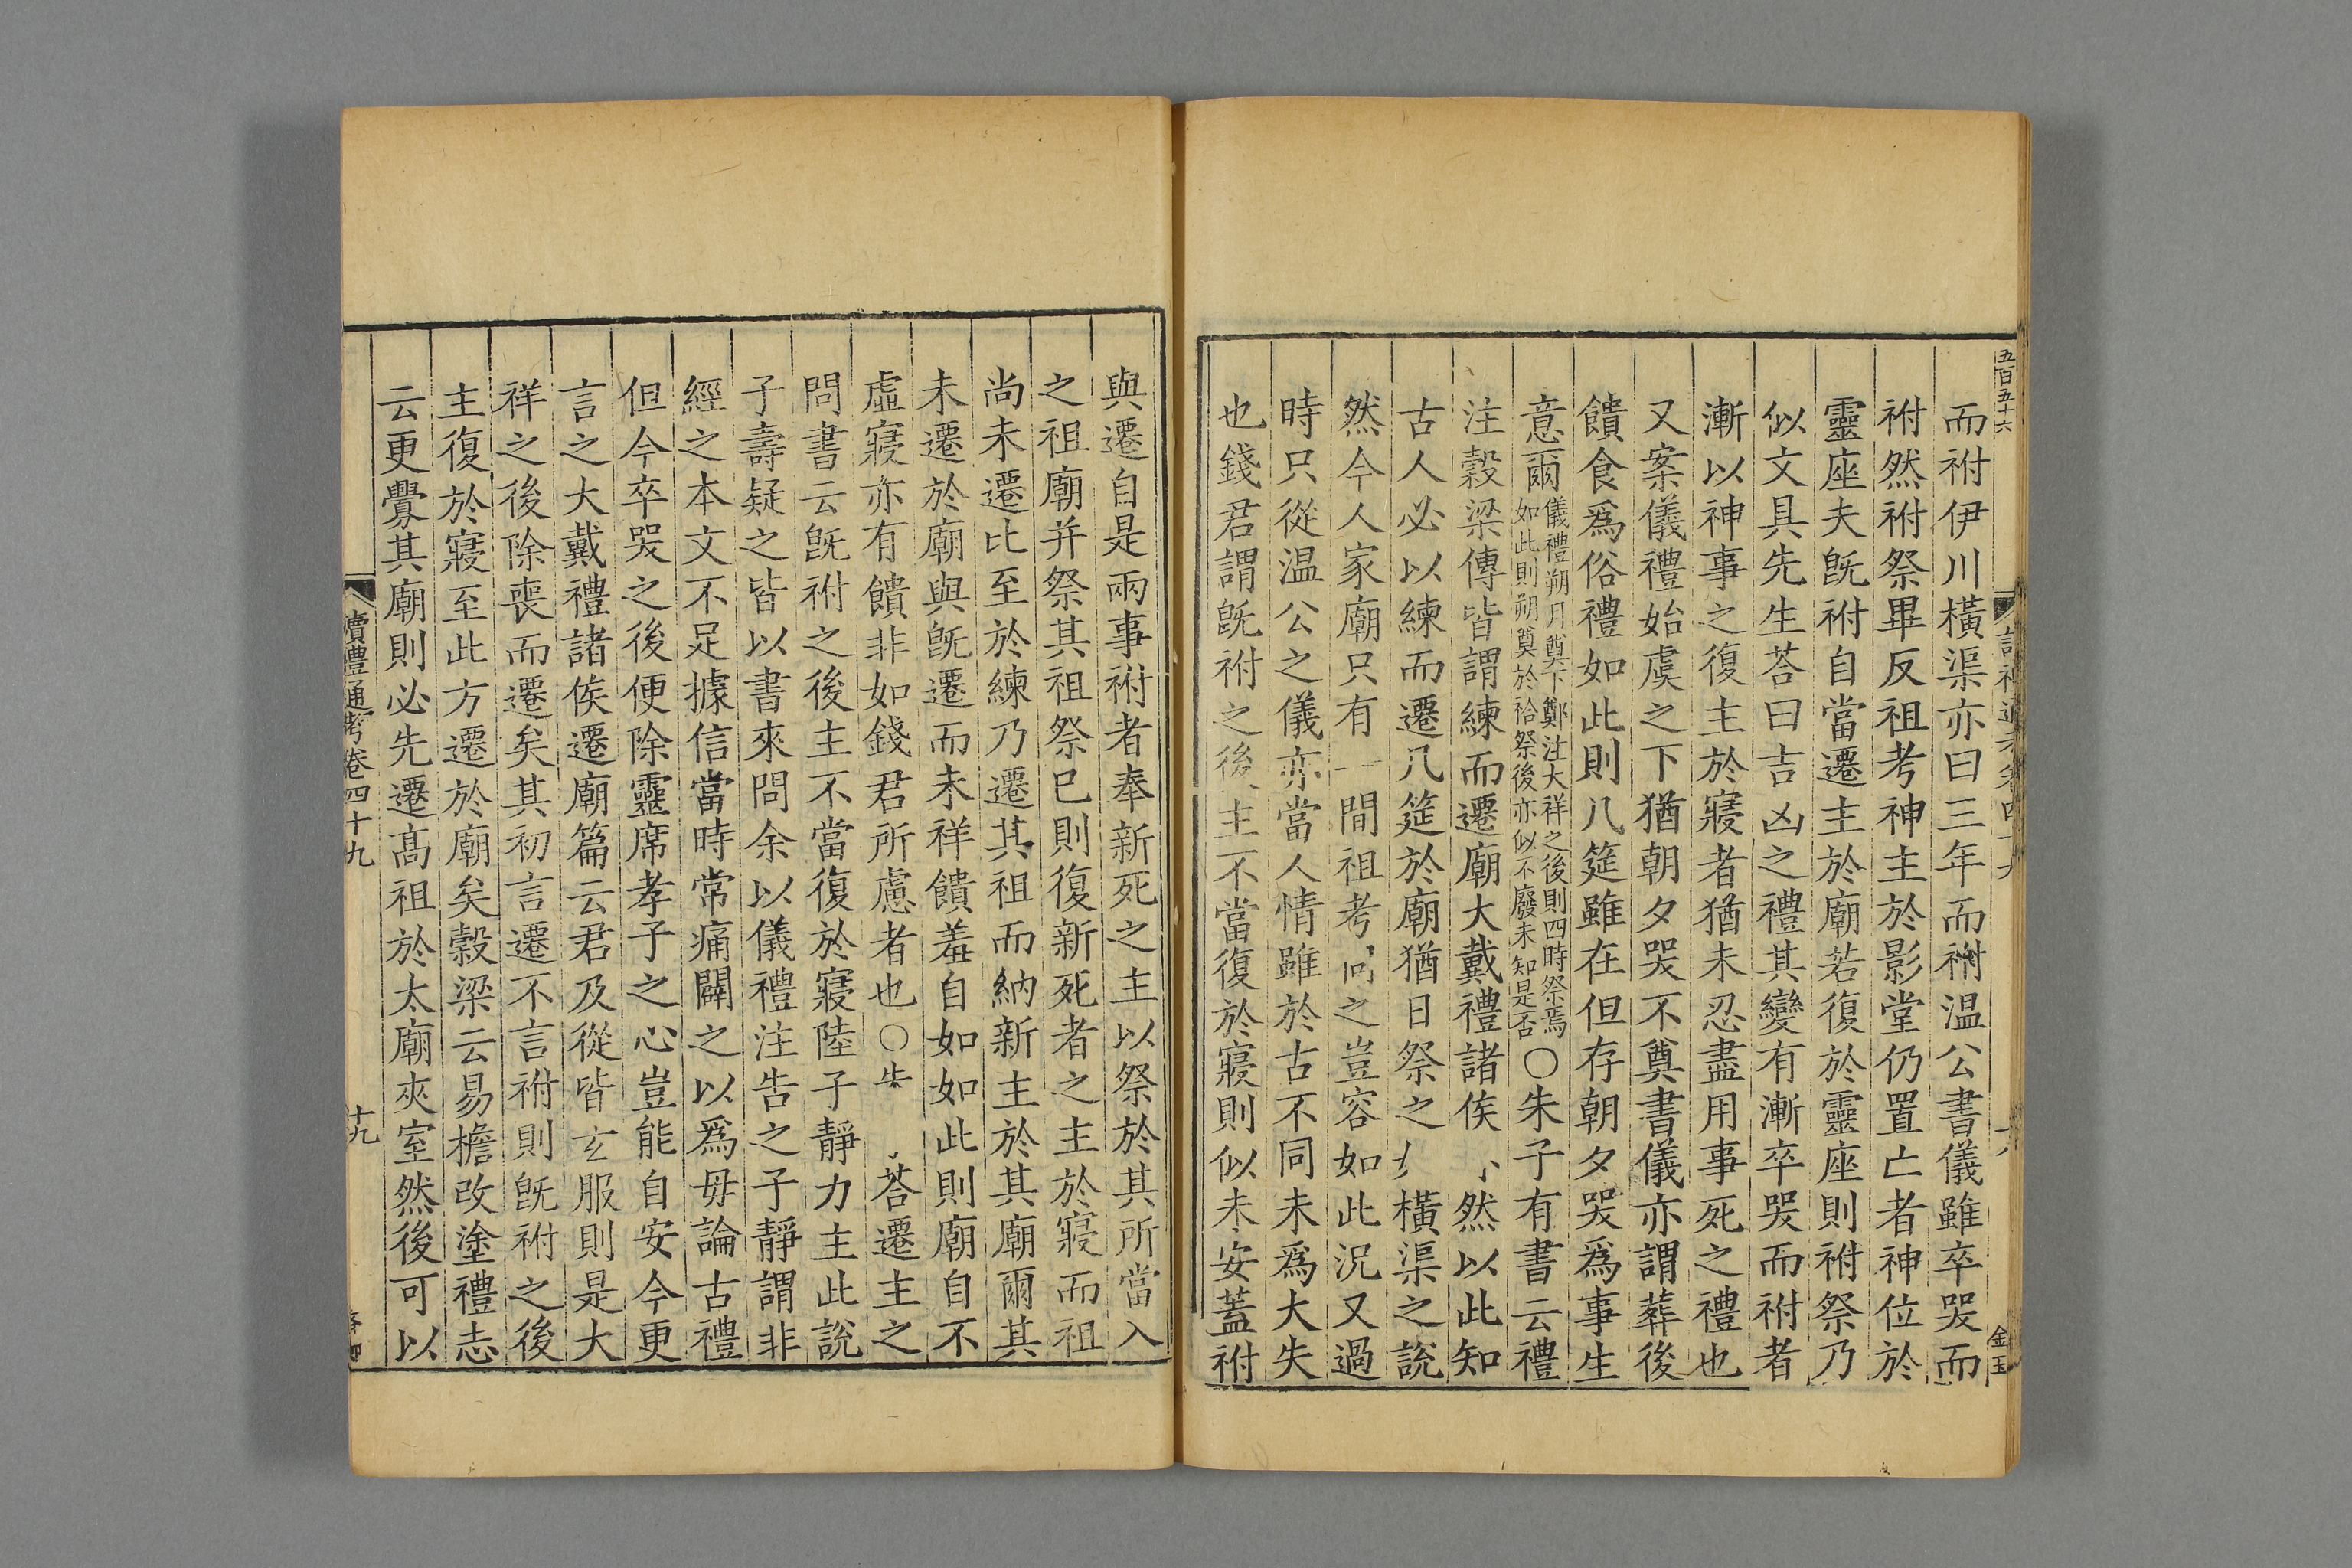 五百五十六
而祔伊川橫渠亦曰三年而祔温公書儀雖卒哭而
祔然祔祭畢反祖考神主於影堂仍置亡者神位於
靈座夫旣祔自當遷主於廟若復於靈座則祔祭乃
似文具先生荅曰吉凶之禮其變有漸卒哭而祔者
漸以神事之復主於寢者猶未忍盡用事死之禮也
又案儀禮始虞之下猶朝夕哭不奠書儀亦謂葬後
饋食爲俗禮如此則几筵雖在但存朝夕哭爲事生
意爾儀禮朔月奠下鄭注大祥之後則四時祭焉如此則朔奠於祫祭後亦似不廢未知是否〇朱子有書云禮
注穀梁傳皆謂練而遷廟大戴禮諸侯 然以此知
古人必以練而遷几筵於廟猶日祭之 橫渠之說
然今人家廟只有一間祖考同之豈容如此況又過
時只從温公之儀亦當人情雖於古不同未爲大失
也錢君謂旣祔之後主不當復於寢則似未安蓋祔
金玉
與遷自是兩事祔者奉新死之主以祭於其所當入
之祖廟并祭其祖祭巳則復新死者之主於寢而祖
尚未遷比至於練乃遷其祖而納新主於其廟爾其
未遷於廟與旣遷而未祥饋羞自如如此則廟自不
虛寢亦有饋非如錢君所慮者也〇 荅遷主之
問書云旣祔之後主不當復於寢陸子靜力主此說
子壽疑之皆以書來問余以儀禮注告之子靜謂非
經之本文不足據信當時常痛闢之以爲毋論古禮
但今卒哭之後便除靈席孝子之心豈能自安今更
言之大戴禮諸侯遷廟篇云君及從皆玄服則是大
祥之後除喪而遷矣其初言遷不言祔則旣祔之後
主復於寢至此方遷於廟矣穀梁云易檐改塗禮志
云更釁其廟則必先遷高祖於太廟夾室然後可以
讀禮通考卷四十九
十九